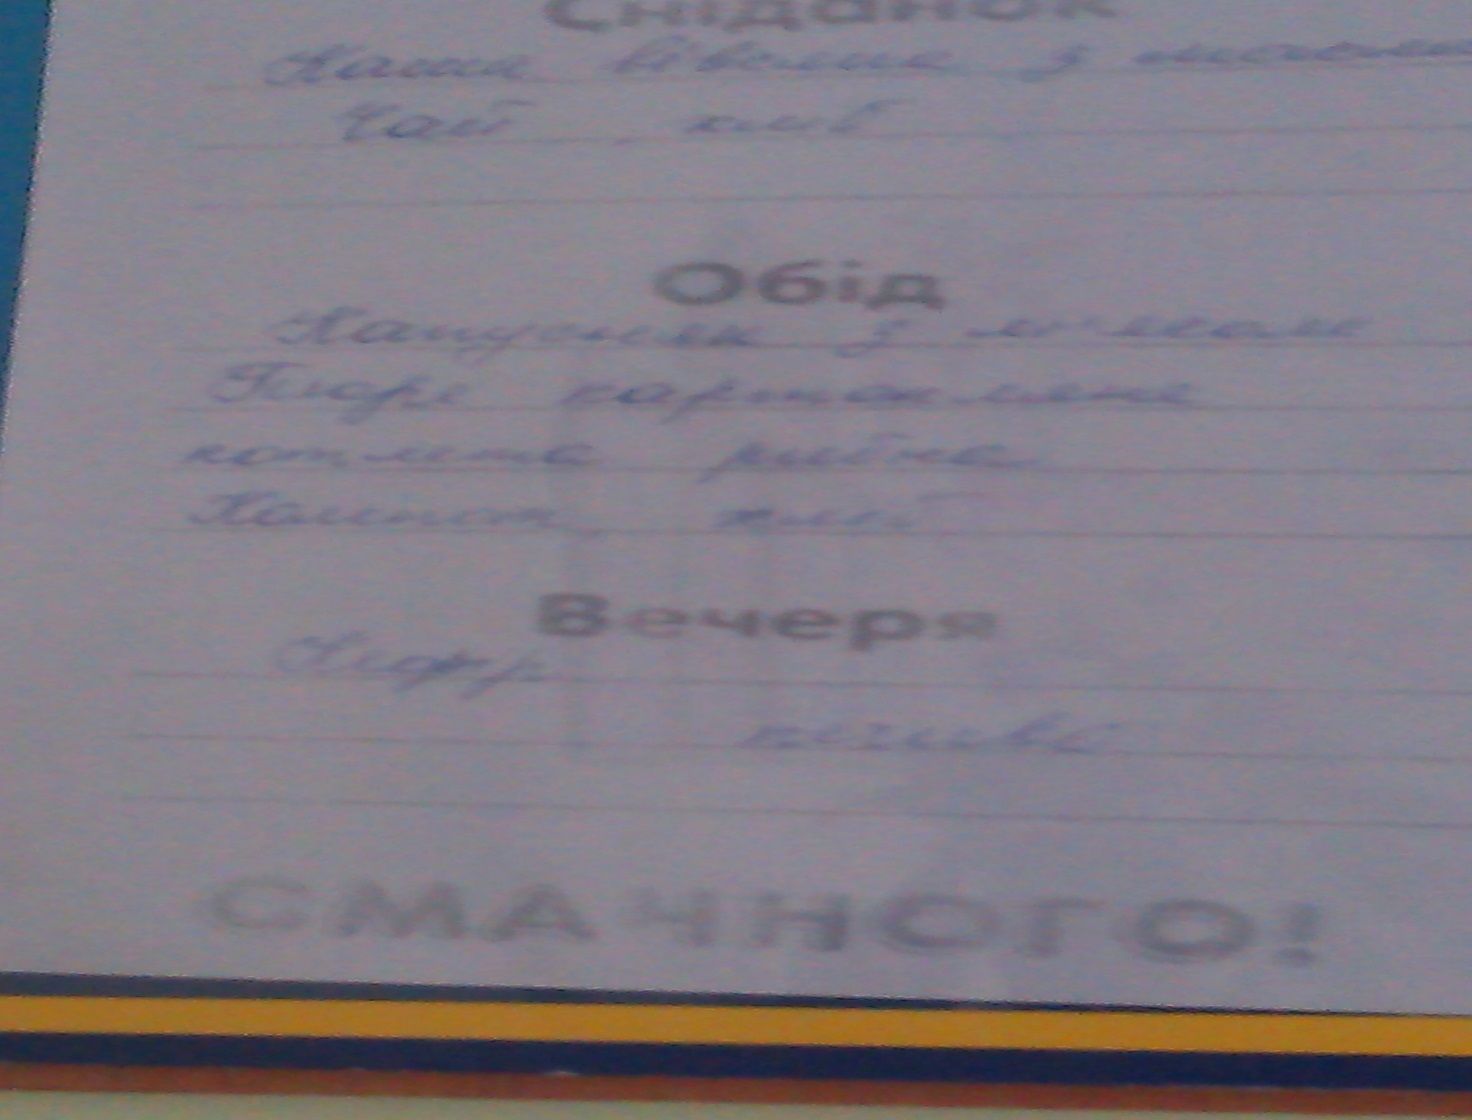 Сніданок
Каша вівсяна з маслом
Чай, хліб
Обід
Капусняк з м'ясом
Пюре картопляне
котлета рибна
Компот, хліб
Вечеря
Кефір
печиво
СМАЧНОГО!